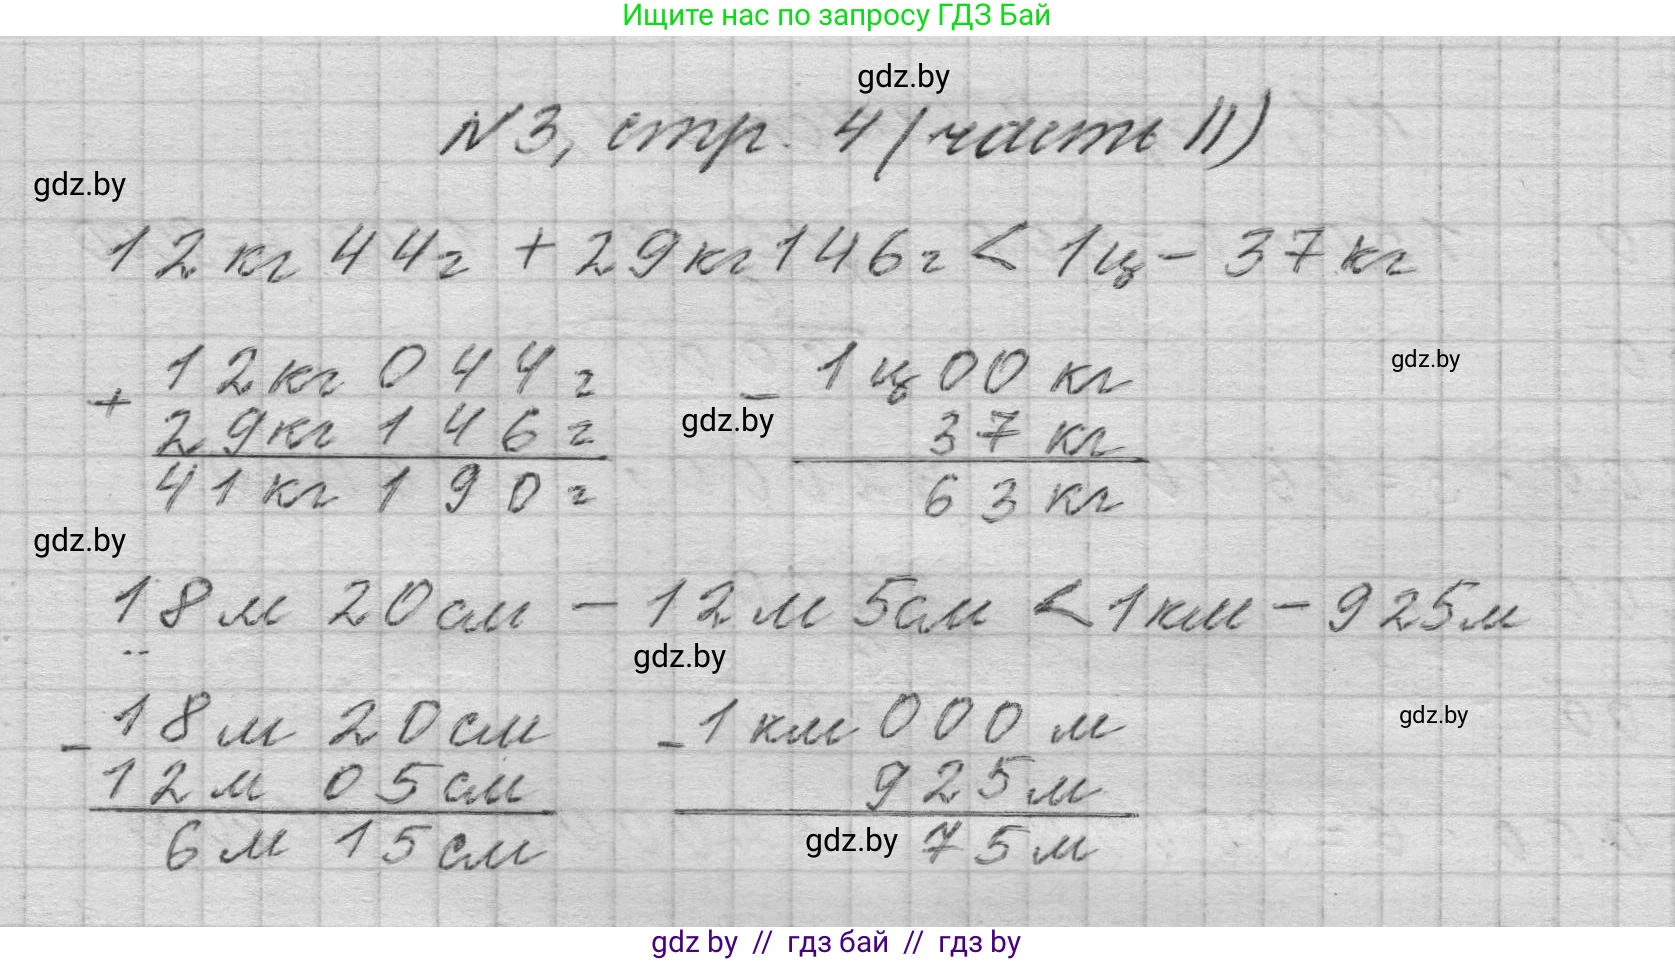 Ищите нас по запросу ГДЗ Бай
gdz.by
№3, стр. 4 (часть II)
gdz.by
12 кг 44 г + 29 кг 146 г < 1 ц - 37 кг
12 кг 044 г - 1 ц 00 кг
gdz.by
+ 29 кг 146 г gdz.by 37 кг
41 кг 190 г 63 кг
gdz.by
18 м 20 см - 12 м 5 см < 1 км - 925 м
gdz.by
- 18 м 20 см - 1 км 000 м
gdz.by
12 м 05 см 925 м
6 м 15 см gdz.by 75 м
gdz by // гдз бай // гдз by